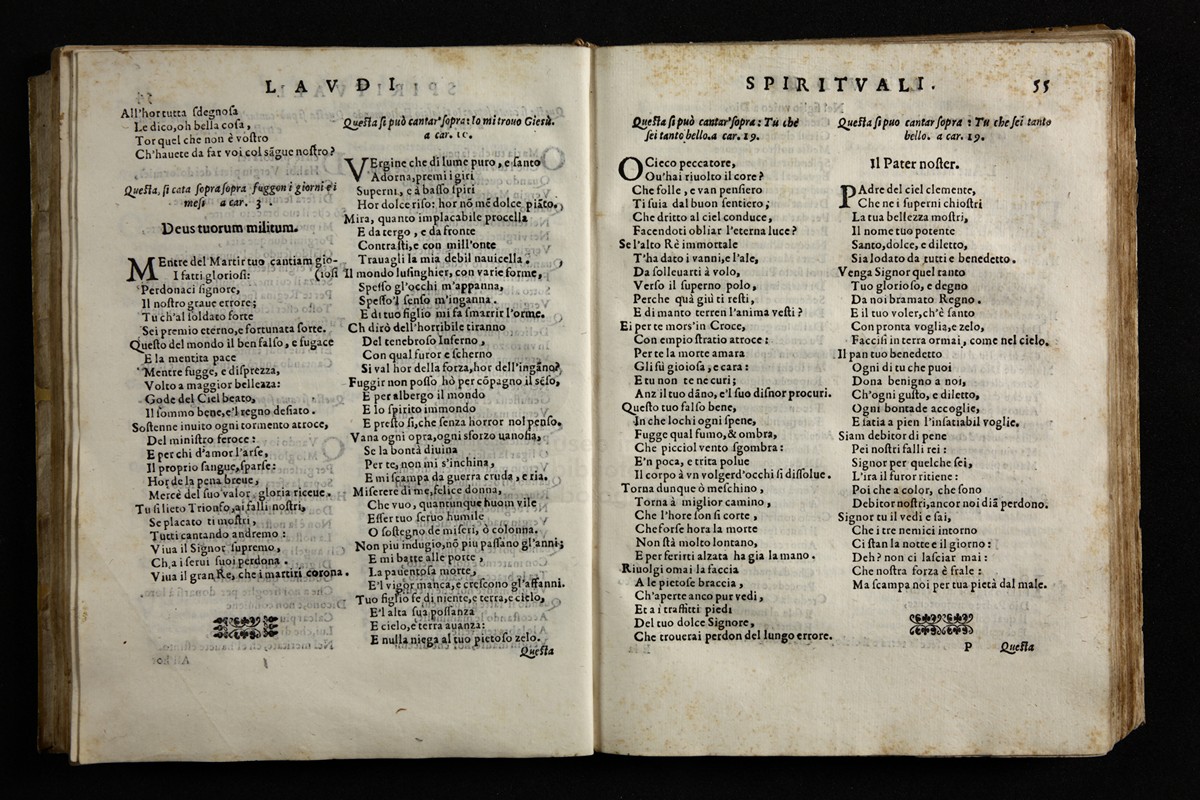 LAVDI
All'hor tutta sdegnosa
Le dico, oh bella cosa,
Tor quel che non è vostro
Ch'hauete da far voi col sãgue nostro?
Questa, si cãta sopra sopra fuggon i giorni e i
mesi a car. 3 .
Deus tuorum militum.
MEntre del Martir tuo cantiam gio-
I fatti gloriosi: (iosi
Perdonaci signore,
Il nostro graue errore;
Tu ch'al soldato forte
Sei premio eterno, e fortunata sorte.
Questo del mondo il ben falso, e fugace
E la mentita pace
Mentre fugge, e disprezza,
Volto a maggior bellezza:
Gode del Ciel beato,
Il sommo bene, e'l regno desiato.
Sostenne inuito ogni tormento atroce,
Del ministro feroce:
E per chi d'amor l'arse,
Il proprio sangue, sparse:
Hor de la pena breue,
Mercè del suo valor gloria riceue.
Tu si lieto Trionfo, ai falli nostri,
Se placato ti mostri,
Tutti cantando andremo:
Viua il Signor supremo,
Ch,a i serui suoi perdona.
Viua il gran Re, che i martiri corona.
Questa si può cantar' sopra: Io mi trouo Giesù.
a car. 10.
VErgine che di lume puro, e santo
Adorna, premi i giri
Superni, e à basso spiri
Hor dolce riso: hor nõ mē dolce piãto,
Mira, quanto implacabile procella
E da tergo, e da fronte
Contrasti, e con mill'onte
Trauagli la mia debil nauicella.
Il mondo lusinghier, con varie forme,
Spesso gl'occhi m'appanna,
Spesso'l senso m'inganna.
E di tuo figlio mi fa smarrir l'orme.
Ch dirò dell'horribile tiranno
Del tenebroso Inferno,
Con qual furor e scherno
Si val hor della forza, hor dell'ingãno?
Fuggir non posso hò per cõpagno il sēso,
E per albergo il mondo
E lo spirito immondo
E presto si, che senza horror nol penso.
Vana ogni opra, ogni sforzo
Se la bontà diuina
Per te, non mi s'inchina,
E mi scampa da guerra cruda, e ria.
Miserere di me, felice donna,
Che vuo, quantunque huom vile
Esser tuo seruo humile
O sostegno de miseri, ò colonna.
Non piu indugio, nõ piu passano gl'anni;
E mi batte alle porte,
La pauentosa morte,
E'l vigor manca, e crescono gl'affanni.
Tuo figlio fe di niente, e terra, e cielo,
E'l alta sua possanza
E cielo, e terra auanza:
E nulla niega al tuo pietoso zelo.
Questa
SPIRITVALI.
55
Questa si può cantar' sopra: Tu che
sei tanto bello. a car. 19.
O Cieco peccatore,
Ou'hai riuolto il core?
Che folle, e van pensiero
Ti suia dal buon sentiero;
Che dritto al ciel conduce,
Facendoti obliar l'eterna luce?
Se l'alto Rè immortale
T'ha dato i vanni, e l'ale,
Da solleuarti à volo,
Verso il superno polo,
Perche quà giù ti resti,
E di manto terren l'anima vesti?
Ei per te mors'in Croce,
Con empio stratio atroce:
Per te la morte amara
Gli fù gioiosa, e cara:
E tu non te ne curi;
Anz il tuo dãno, e'l suo disnor procuri.
Questo tuo falso bene,
In che lochi ogni spene,
Fugge qual fumo, & ombra,
Che picciol vento sgombra:
E'n poca, e trita polue
Il corpo à vn volger d'occhi si dissolue.
Torna dunque ò meschino,
Torna à miglior camino,
Che l'hore son si corte,
Che forse hora la morte
Non stà molto lontano,
E per ferirti alzata ha gia la mano.
Riuolgi omai la faccia
A le pietose braccia,
Ch'aperte anco pur vedi,
Et a i trafitti piedi
Del tuo dolce Signore,
Che trouerai perdon del lungo errore.
Questa si puo cantar sopra: Tu che sei tanto
bello. a car. 19.
Il Pater noster.
PAdre del ciel clemente,
Che ne i superni chiostri
La tua bellezza mostri,
Il nome tuo potente
Santo, dolce, e diletto,
Sia lodato da tutti e benedetto.
Venga Signor quel tanto
Tuo glorioso, e degno
Da noi bramato Regno.
E il tuo voler, ch'è santo
Con pronta voglia, e zelo,
Faccisi in terra ormai, come nel cielo.
Il pan tuo benedetto
Ogni dì tu che puoi
Dona benigno a noi,
Ch'ogni gusto, e diletto,
Ogni bontade accoglie,
E satia a pien l'insatiabil voglie.
Siam debitor di pene
Pei nostri falli rei:
Signor per quelche sei,
L'ira il furor ritiene:
Poi che a color, che sono
Debitor nostri, ancor noi diã perdono.
Signor tu il vedi e sai,
Che i tre nemici intorno
Ci stan la notte e il giorno:
Deh? non ci lasciar mai:
Che nostra forza è frale:
Ma scampa noi per tua pietà dal male.
P
Questa